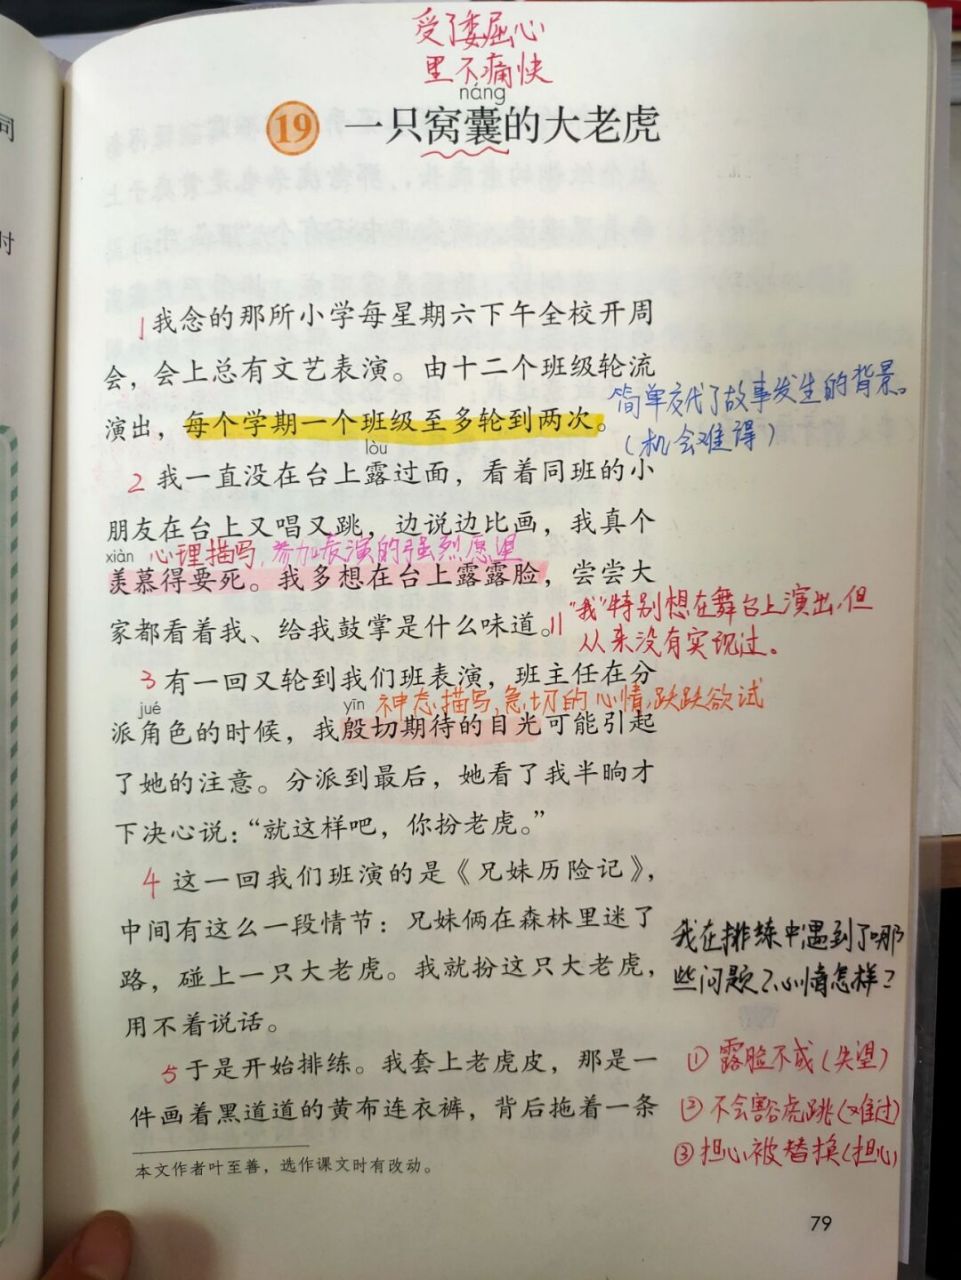 受了委屈心
里不痛快
náng
19 一只窝囊的大老虎
1 我念的那所小学每星期六下午全校开周
会，会上总有文艺表演。由十二个班级轮流
演出，每个学期一个班级至多轮到两次。
简单交代了故事发生的背景。
（机会难得）
lòu
2 我一直没在台上露过面，看着同班的小
朋友在台上又唱又跳，边说边比画，我真个
xiàn 心理描写，参加表演的强烈愿望
羡慕得要死。我多想在台上露露脸，尝尝大
家都看着我、给我鼓掌是什么味道。//
"我"特别想在舞台上演出，但
从来没有实现过。
3 有一回又轮到我们班表演，班主任在分
jué yīn 神态描写，急切的心情，跃跃欲试
派角色的时候，我殷切期待的目光可能引起
了她的注意。分派到最后，她看了我半晌才
下决心说：“就这样吧，你扮老虎。”
4 这一回我们班演的是《兄妹历险记》，
中间有这么一段情节：兄妹俩在森林里迷了
路，碰上一只大老虎。我就扮这只大老虎，
用不着说话。
我在排练中遇到了哪
些问题？心情怎样？
5 于是开始排练。我套上老虎皮，那是一
件画着黑道道的黄布连衣裤，背后拖着一条
①露脸不成（失望）
②不会豁虎跳（难过）
③担心被替换（担心）
本文作者叶至善，选作课文时有改动。
79
同
时